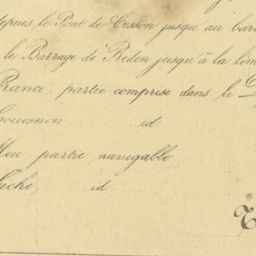 depuis le Pont de Cesson jusqu'au bar
le Barrage de Redon jusqu'à la lim
Rance, partie comprise dans le D
Couesnon id
partie navigable
id